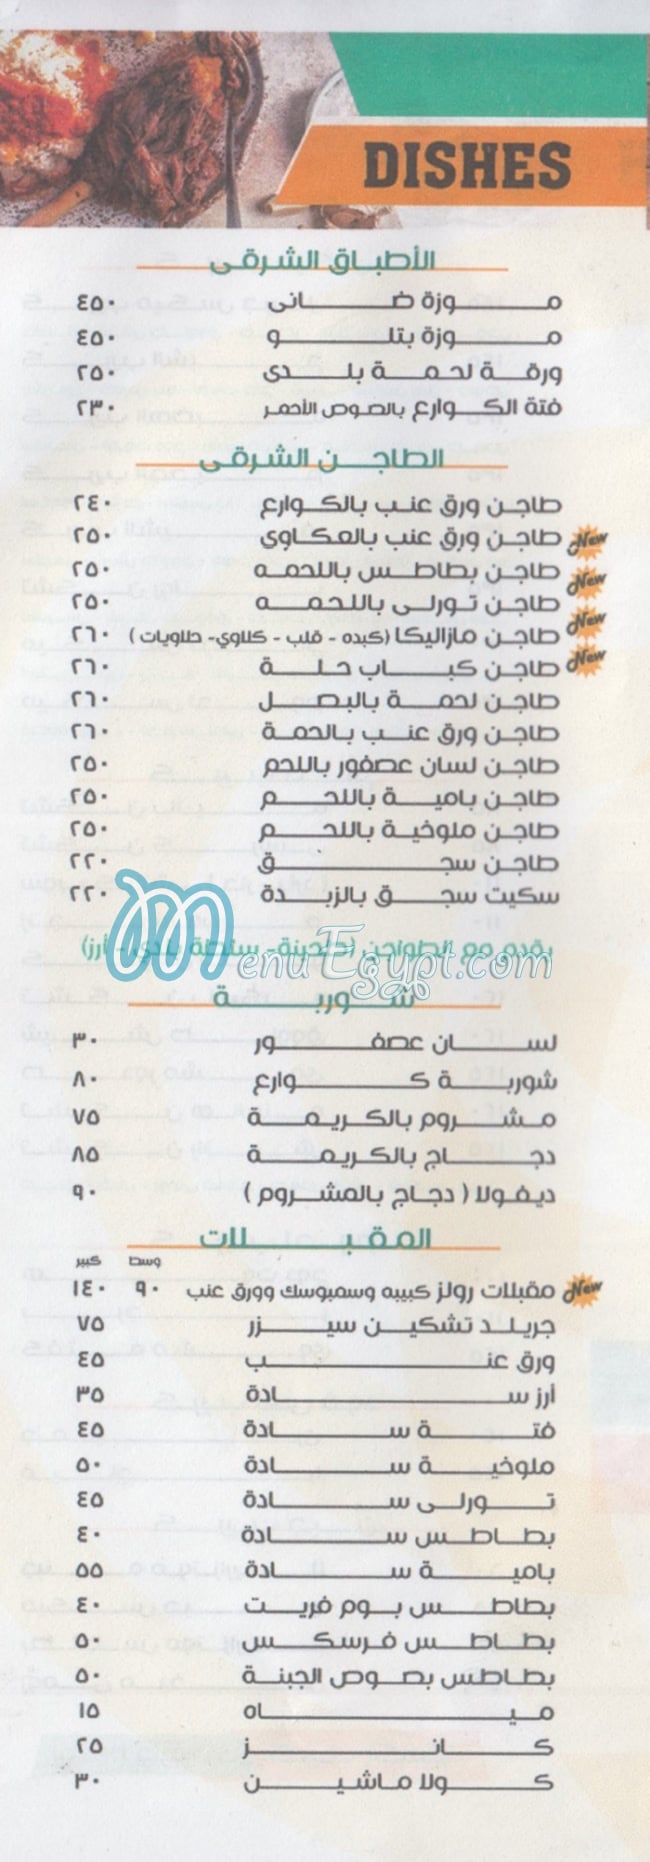 DISHES
الأطباق الشرقى
موزة ضانى ٤٥٠
موزة بتلو ٤٥٠
ورقة لحمة بلدى ٢٥٠
فتة الكوارع بالصوص الأحمر ٢٣٠
الطاجن الشرقى
طاجن ورق عنب بالكوارع ٢٤٠
طاجن ورق عنب بالعكاوى ٢٥٠ New
طاجن بطاطس باللحمه ٢٥٠ New
طاجن تورلى باللحمه ٢٥٠
طاجن مازاليكا (كبده - قلب - كلاوي- حلاويات) ٢٦٠ New
طاجن كباب حلة ٢٦٠ New
طاجن لحمة بالبصل ٢٦٠
طاجن ورق عنب بالحمة ٢٦٠
طاجن لسان عصفور باللحم ٢٥٠
طاجن بامية باللحم ٢٥٠
طاجن ملوخية باللحم ٢٥٠
طاجن سجق ٢٢٠
سكيت سجق بالزبدة ٢٢٠
يقدم مع الطواجن (طحينة- سلطة بلدى - أرز)
MenuEgypt.com
شوربة
لسان عصفور ٣٠
شوربة كوارع ٨٠
مشروم بالكريمة ٧٥
دجاج بالكريمة ٨٥
ديفولا (دجاج بالمشروم) ٩٠
المقبلات
وسط كبير
مقبلات رولز كبيبه وسمبوسك وورق عنب ٩٠ ١٤٠ New
جريلد تشكين سيزر ٧٥
ورق عنب ٤٥
أرز سادة ٣٥
فتة سادة ٤٥
ملوخية سادة ٥٠
تورلى سادة ٤٥
بطاطس سادة ٤٠
بامية سادة ٥٥
بطاطس بوم فريت ٤٠
بطاطس فرسكس ٥٠
بطاطس بصوص الجبنة ٥٠
مياه ١٥
كانز ٢٥
كولا ماشين ٣٠